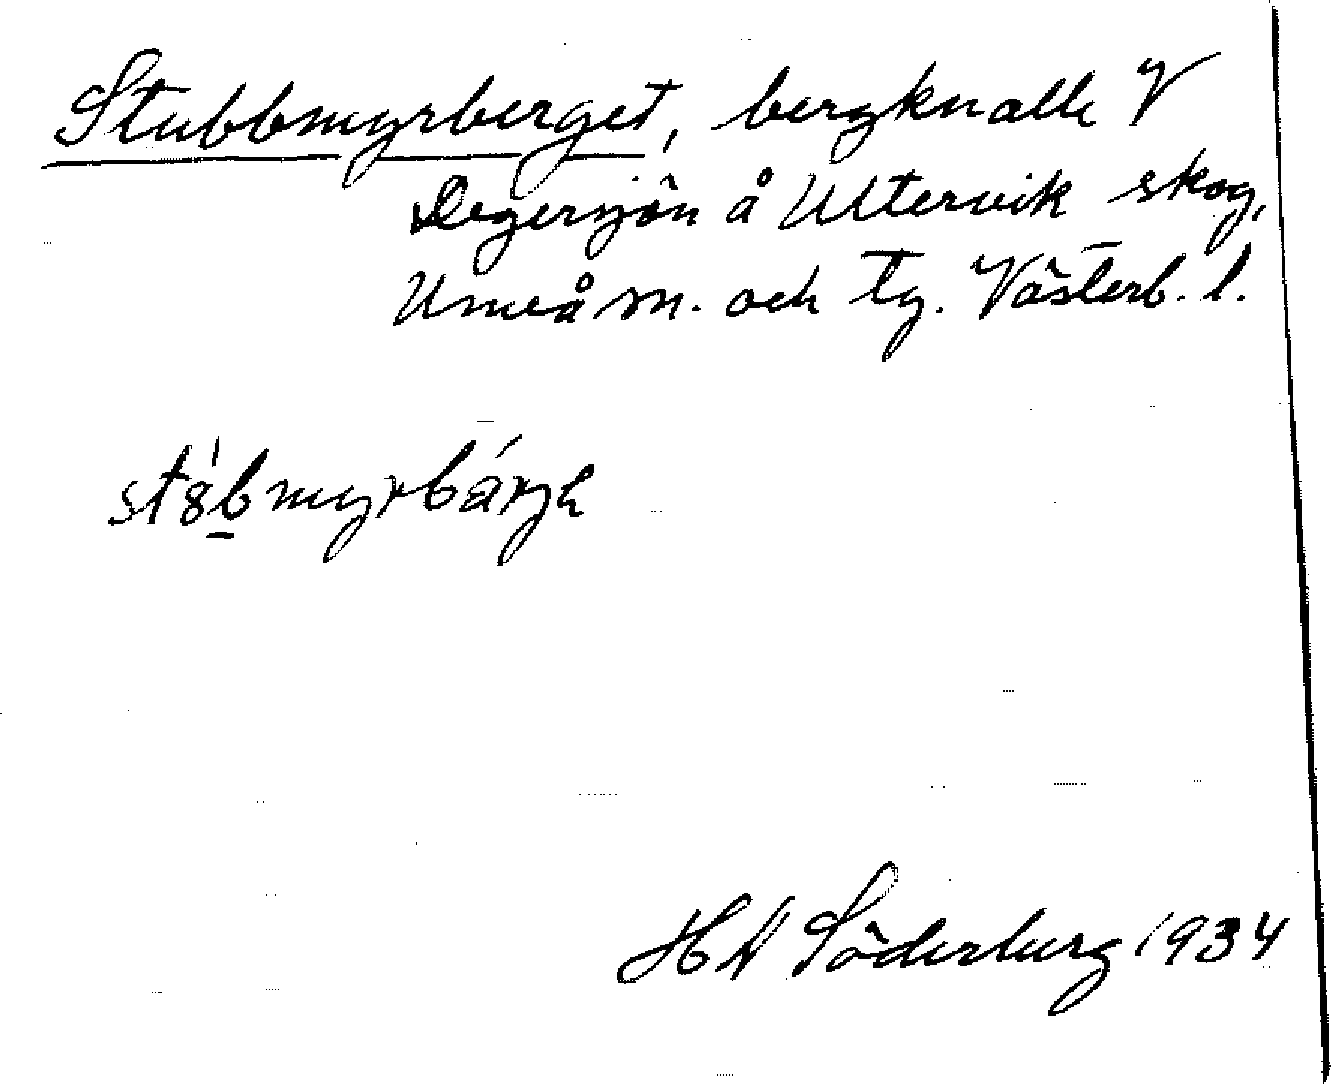 Stubbmyrberget, bergknalle V
Degersjön å Ultervik skog,
Umeå m. och tg. Västerb. l.
Söderberg 1934